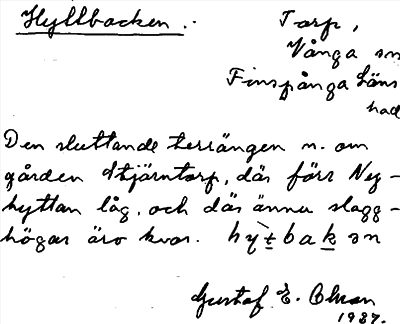 Hyllbacken.
Torp,
Vånga sn
Finspånga läns
had
Den sluttande terrängen n. om
gården Stjärntorp, där förr Ny-
hyttan låg, och där ännu slagg-
högar äro kvar. hỳtbakən
Gustaf E.
1937.